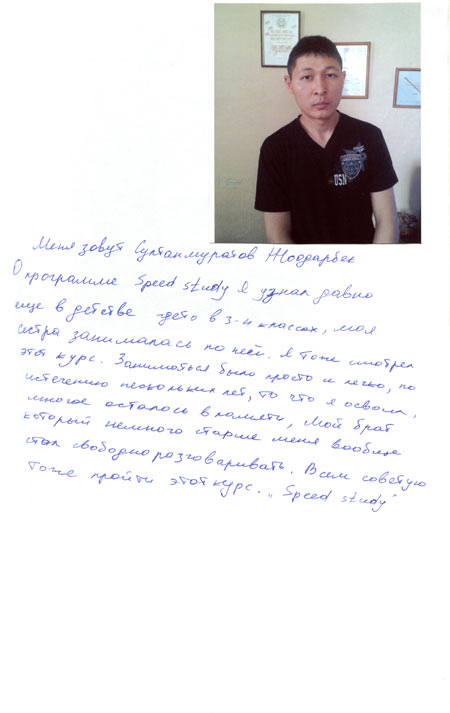 USN
Меня зовут Султанмуратов Жоодарбек
О программе Speed study Я узнал давно
еще в детстве гдето в 3-4 классах, моя
сестра занималась по ней. Я тоже смотрел
этот курс. Заниматься было просто и легко, по
истечению нескольких лет, то что я освоил,
многое осталось в памяти, мой брат
который немного старше меня вообще
стал свободно разговаривать. Всем советую
тоже пройти этот курс. „Speed study"